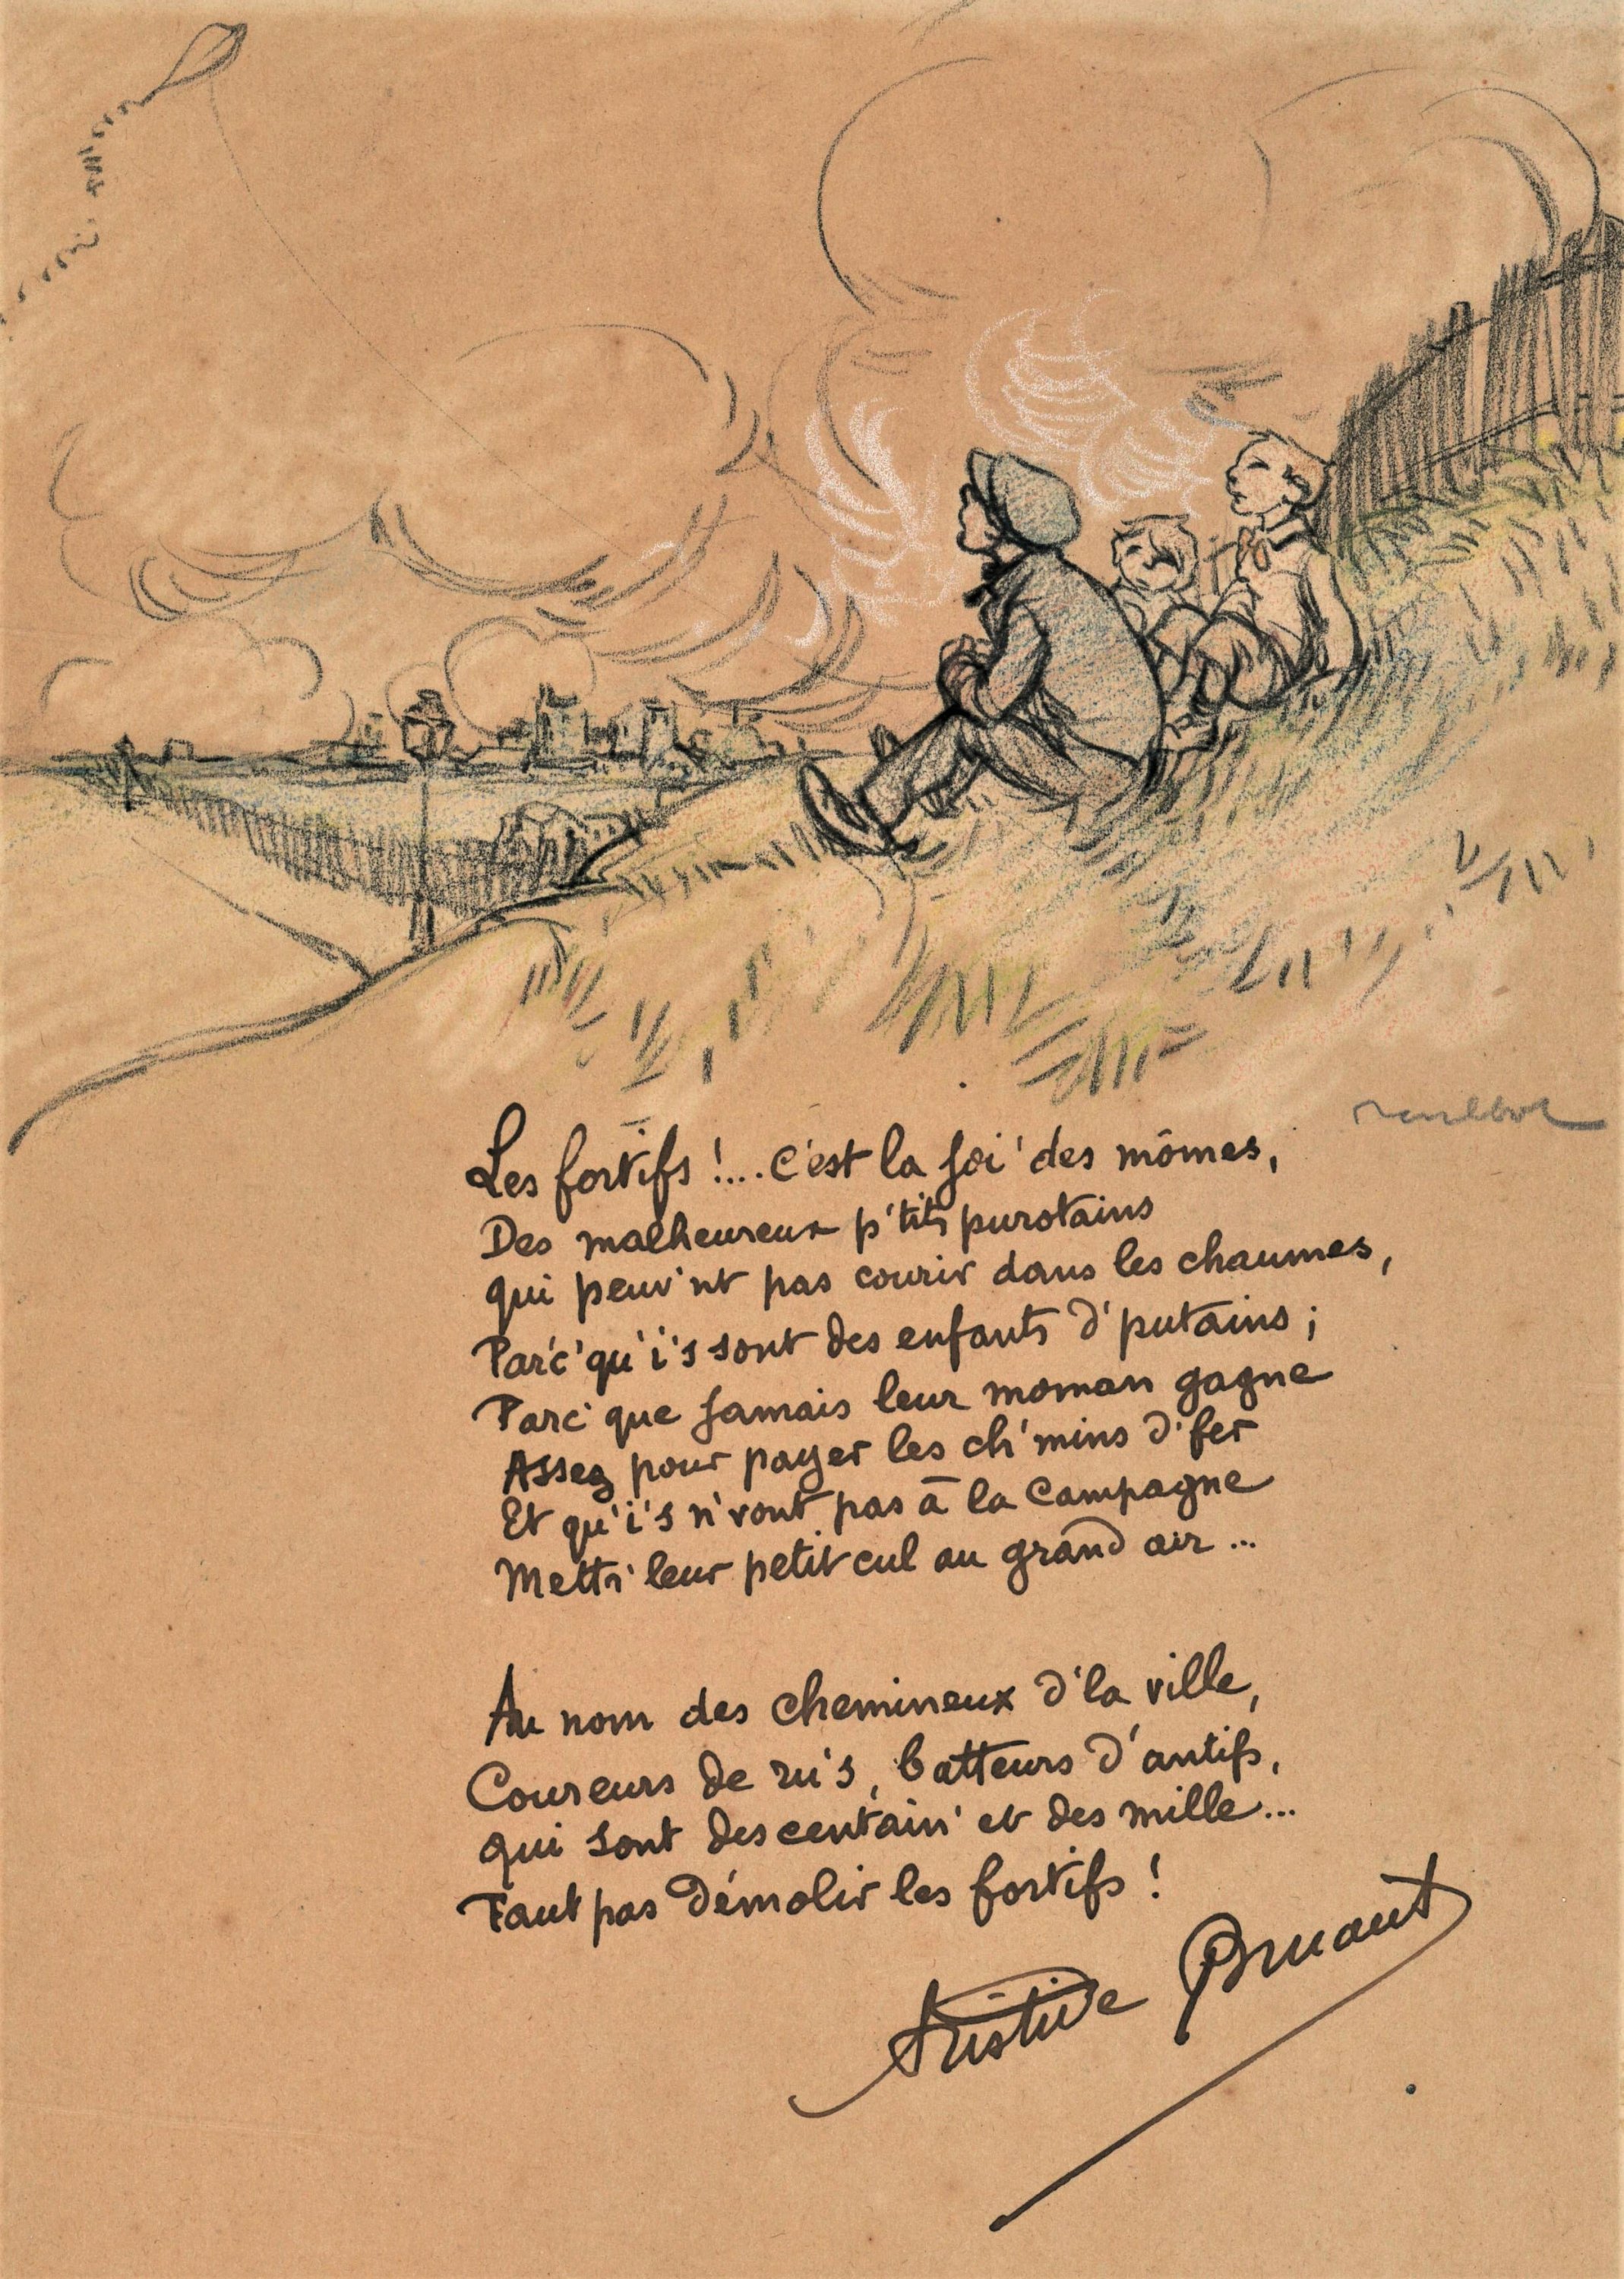 Poulbot
Les fortifs !... C'est la joi' des mômes,
Des malheureux p'tits purotains
Qui peuv'nt pas courir dans les chaumes,
Parc' qu'i's sont des enfants d'putains ;
Parc' que jamais leur moman gagne
Assez pour payer les ch'mins d'fer
Et qu'i's n'vont pas à la Campagne
Mettr' leur petit cul au grand air ...
Au nom des chemineux d'la ville,
Coureurs de ru's, batteurs d'antifs,
Qui sont des centain' et des mille ...
Faut pas démolir les fortifs !
Aristide Bruant